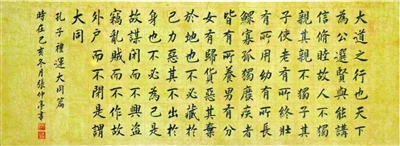 大道之行也天下
為公選賢與能講
信脩睦故人不獨
親其親不獨子其
子使老有所終壯
有所用幼有所長
鰥寡孤獨廢疾者
皆有所養男有分
女有歸貨惡其棄
於地也不必藏於
己力惡其不出於
身也不必為己是
故謀閉而不興盜
竊亂賊而不作故
外戶而不閉是謂
大同
孔子禮運大同篇
時在己亥冬月張仲亭書